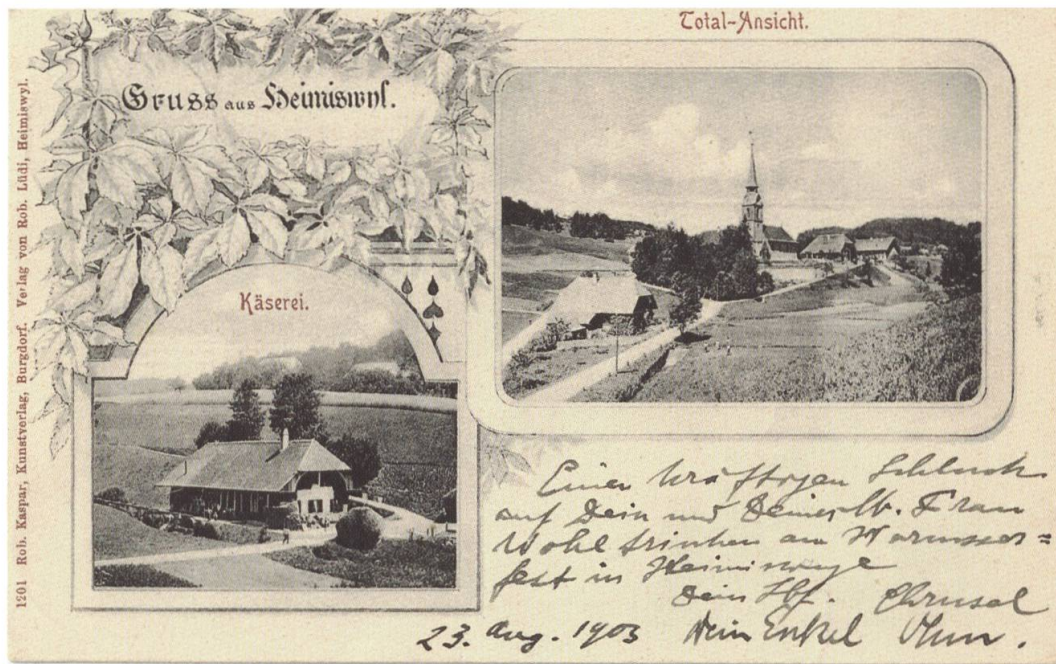 Total-Ansicht.
Gruss aus Heimiswyl.
Käserei.
1201 Rob. Kaspar, Kunstverlag, Burgdorf. Verlag von Rob. Lüdi, Heimiswyl.
Einen kräftigen Schluck
auf Dein und Deiner lb. Frau
Wohl trinken am
fest in Heimiswyl
Dein
23. Aug. 1903 Dein Enkel